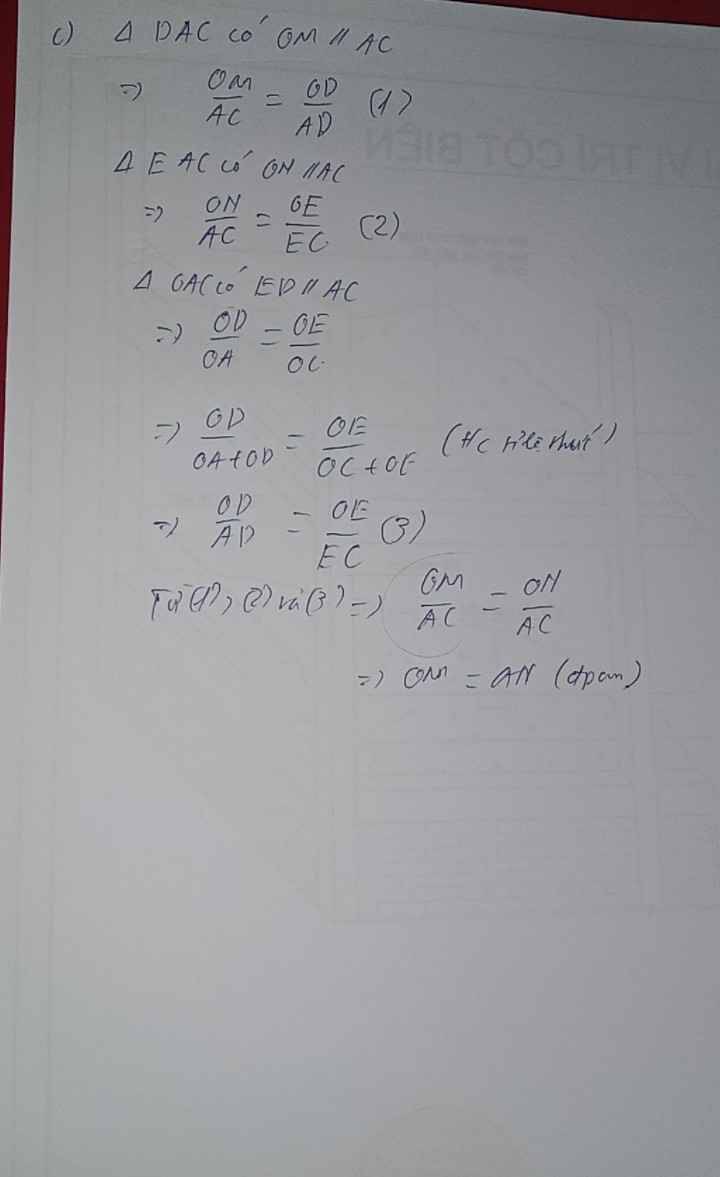 c) Δ DAC có OM // AC
=> OM/AC = OD/AD (1)
Δ EAC có ON // AC
=> ON/AC = OE/EC (2)
Δ OAC có ED // AC
=> OD/OA = OE/OC
=> OD/OA+OD = OE/OC+OE (t/c tỉ lệ thức)
=> OD/AD = OE/EC (3)
Từ (1), (2) và (3) => OM/AC = ON/AC
=> OM = ON (đpcm)
VỊ TRÍ CỘT BIÊN